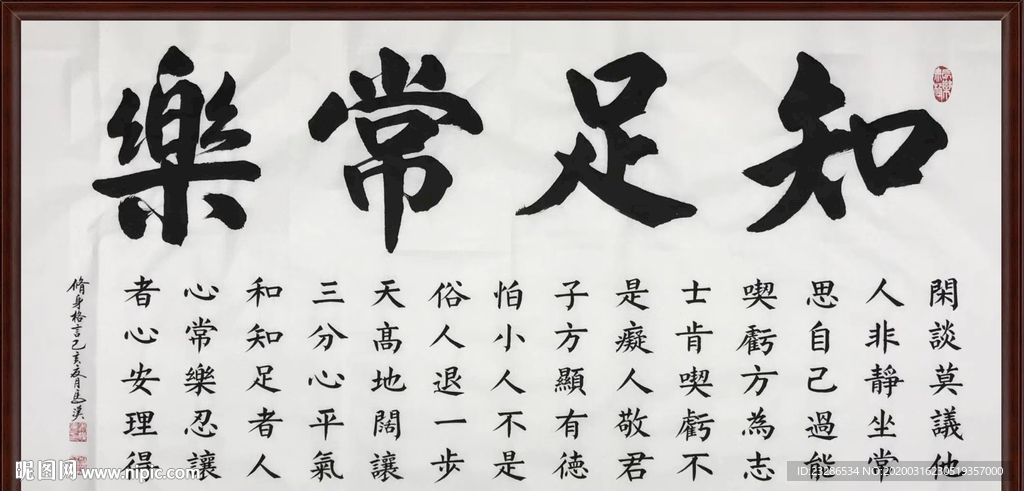 知足常樂
閑談莫議他
人非靜坐常
思自己過能
喫虧方為志
士肯喫虧不
是癡人敬君
子方顯有德
怕小人不是
俗人退一步
天髙地闊讓
三分心平氣
和知足者人
心常樂忍讓
者心安理得
脩身格言乙亥
昵图网 www.nipic.com
ID:23286534 NO:20200316230519357000